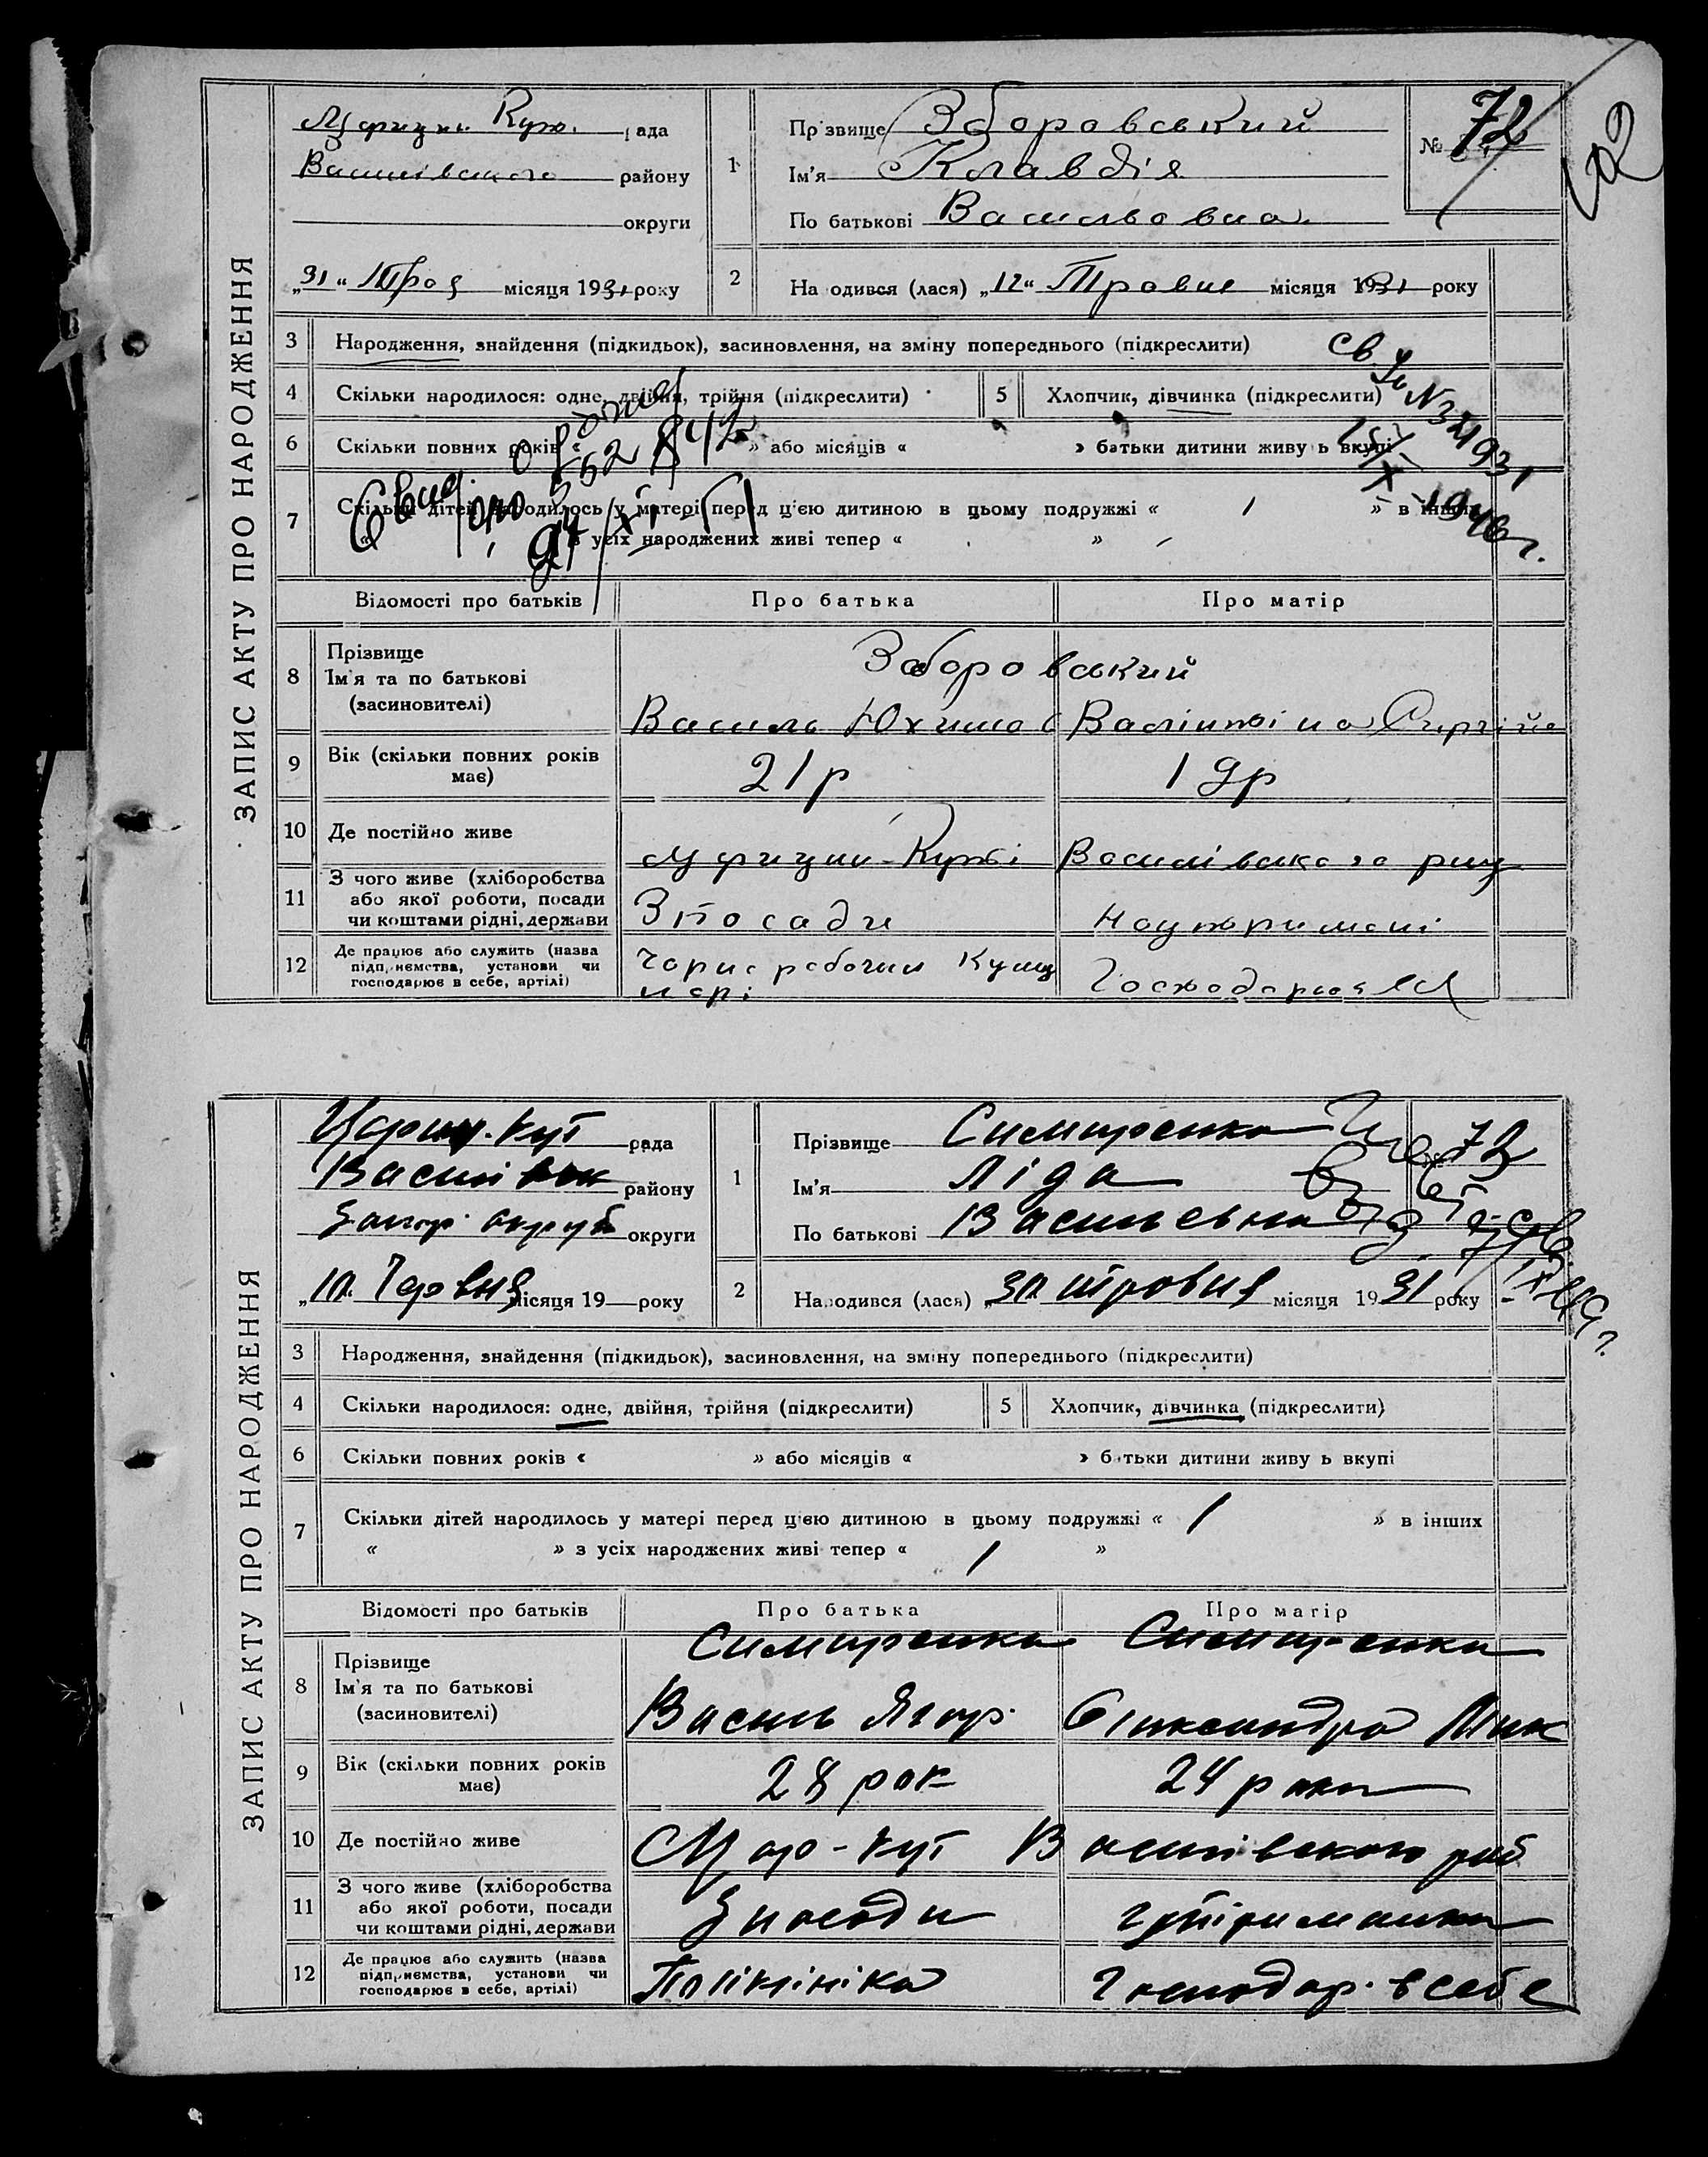 ЗАПИС АКТУ ПРО НАРОДЖЕННЯ
Царицин. Кут. рада
Василівського району
округи
„31“ Трав місяця 1931 року
1
Прізвище Зборовський
Ім'я Клавдія
По батькові Васильовна
№ 72
2 Народився (лася) „12“ Травня місяця 1931 року
3 Народження, знайдення (підкидьок), засиновлення, на зміну попереднього (підкреслити)
4 Скільки народилося: одне, двійня, трійня (підкреслити)
5 Хлопчик, дівчинка (підкреслити)
6 Скільки повних років « » або місяців « » батьки дитини живуть вкупі
7 Скільки дітей народилось у матері перед цією дитиною в цьому подружжі « / » в інших
« » з усіх народжених живі тепер « »
Відомості про батьків Про батька Про матір
8 Прізвище
Ім'я та по батькові
(засиновителі)
Зборовський
Василь Юхимов Валінтіна Сиргійов
9 Вік (скільки повних років має) 21 р 19 р
10 Де постійно живе Царицин-Куті Василівського рну
11 З чого живе (хліборобства або якої роботи, посади чи коштами рідні, держави З посади На утримані
12 Де працює або служить (назва підприємства, установи чи господарює в себе, артілі) Чорно робочий
ЗАПИС АКТУ ПРО НАРОДЖЕННЯ
Цариц. Кут рада
Василівск району
Запор. округи округи
„10. Червня місяця 19 року
1
Прізвище Симиренко
Ім'я Ліда
По батькові Васильевна
№ 73
2 Народився (лася) „30 травня місяця 1931 року
3 Народження, знайдення (підкидьок), засиновлення, на зміну попереднього (підкреслити)
4 Скільки народилося: одне, двійня, трійня (підкреслити)
5 Хлопчик, дівчинка (підкреслити)
6 Скільки повних років « » або місяців « » батьки дитини живуть вкупі
7 Скільки дітей народилось у матері перед цією дитиною в цьому подружжі « 1 » в інших
« » з усіх народжених живі тепер « 1 »
Відомості про батьків Про батька Про матір
8 Прізвище
Ім'я та по батькові
(засиновителі)
Симиренко Симиренко
Василь Ягор. Оликсандра Мик
9 Вік (скільки повних років має) 28 рок 24 роки
10 Де постійно живе Цар-Кут Василівського раб
11 З чого живе (хліборобства або якої роботи, посади чи коштами рідні, держави З посади утриманка
12 Де працює або служить (назва підприємства, установи чи господарює в себе, артілі) Поліклініка Господар. в себе